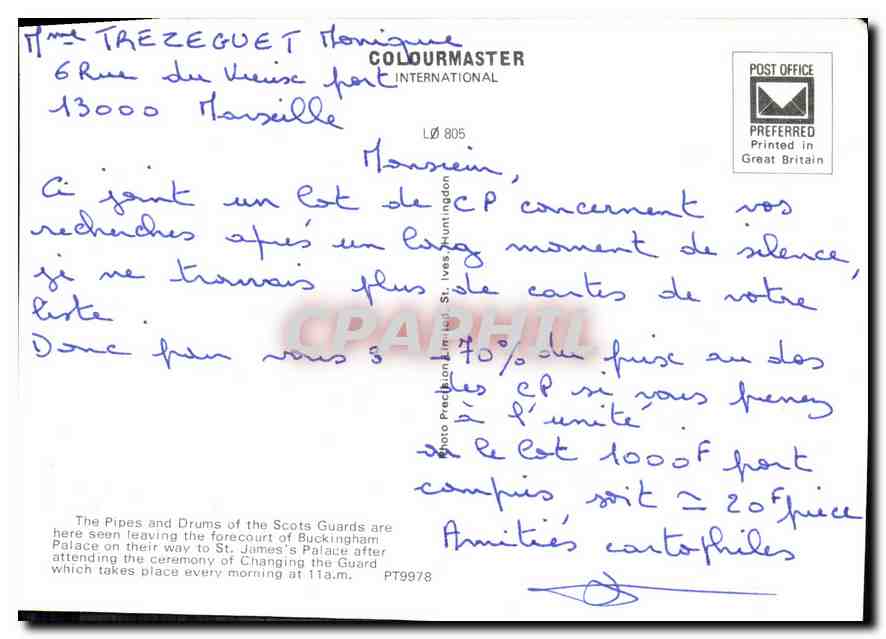 Mme TREZEGUET Monique
6 Rue du Vieux port
13000 Marseille
COLOURMASTER
INTERNATIONAL
LØ 805
POST OFFICE
PREFERRED
Printed in
Great Britain
Monsieur,
Ci joint un lot de CP concernent vos
recherches après un long moment de silence,
je ne trouvais plus de cartes de votre
liste.
Donc pour vous : -70% du prix au dos
des CP si vous prenez
à l'unité.
ou le lot 1000F port
compris soit ≃ 20F pièce
Amitiés cartophiles
Photo Precision Limited, St. Ives, Huntingdon
CPAPHIL
The Pipes and Drums of the Scots Guards are
here seen leaving the forecourt of Buckingham
Palace on their way to St. James's Palace after
attending the ceremony of Changing the Guard
which takes place every morning at 11a.m. PT9978